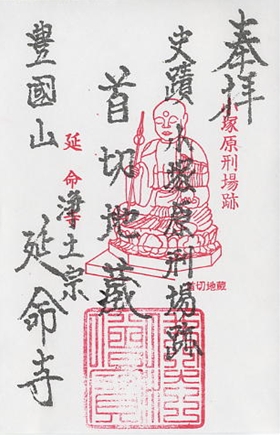 奉拝
小塚原刑場跡
史蹟 小塚原刑場跡
首切地蔵
首切地蔵
延命寺
浄土宗
豊國山
延命寺